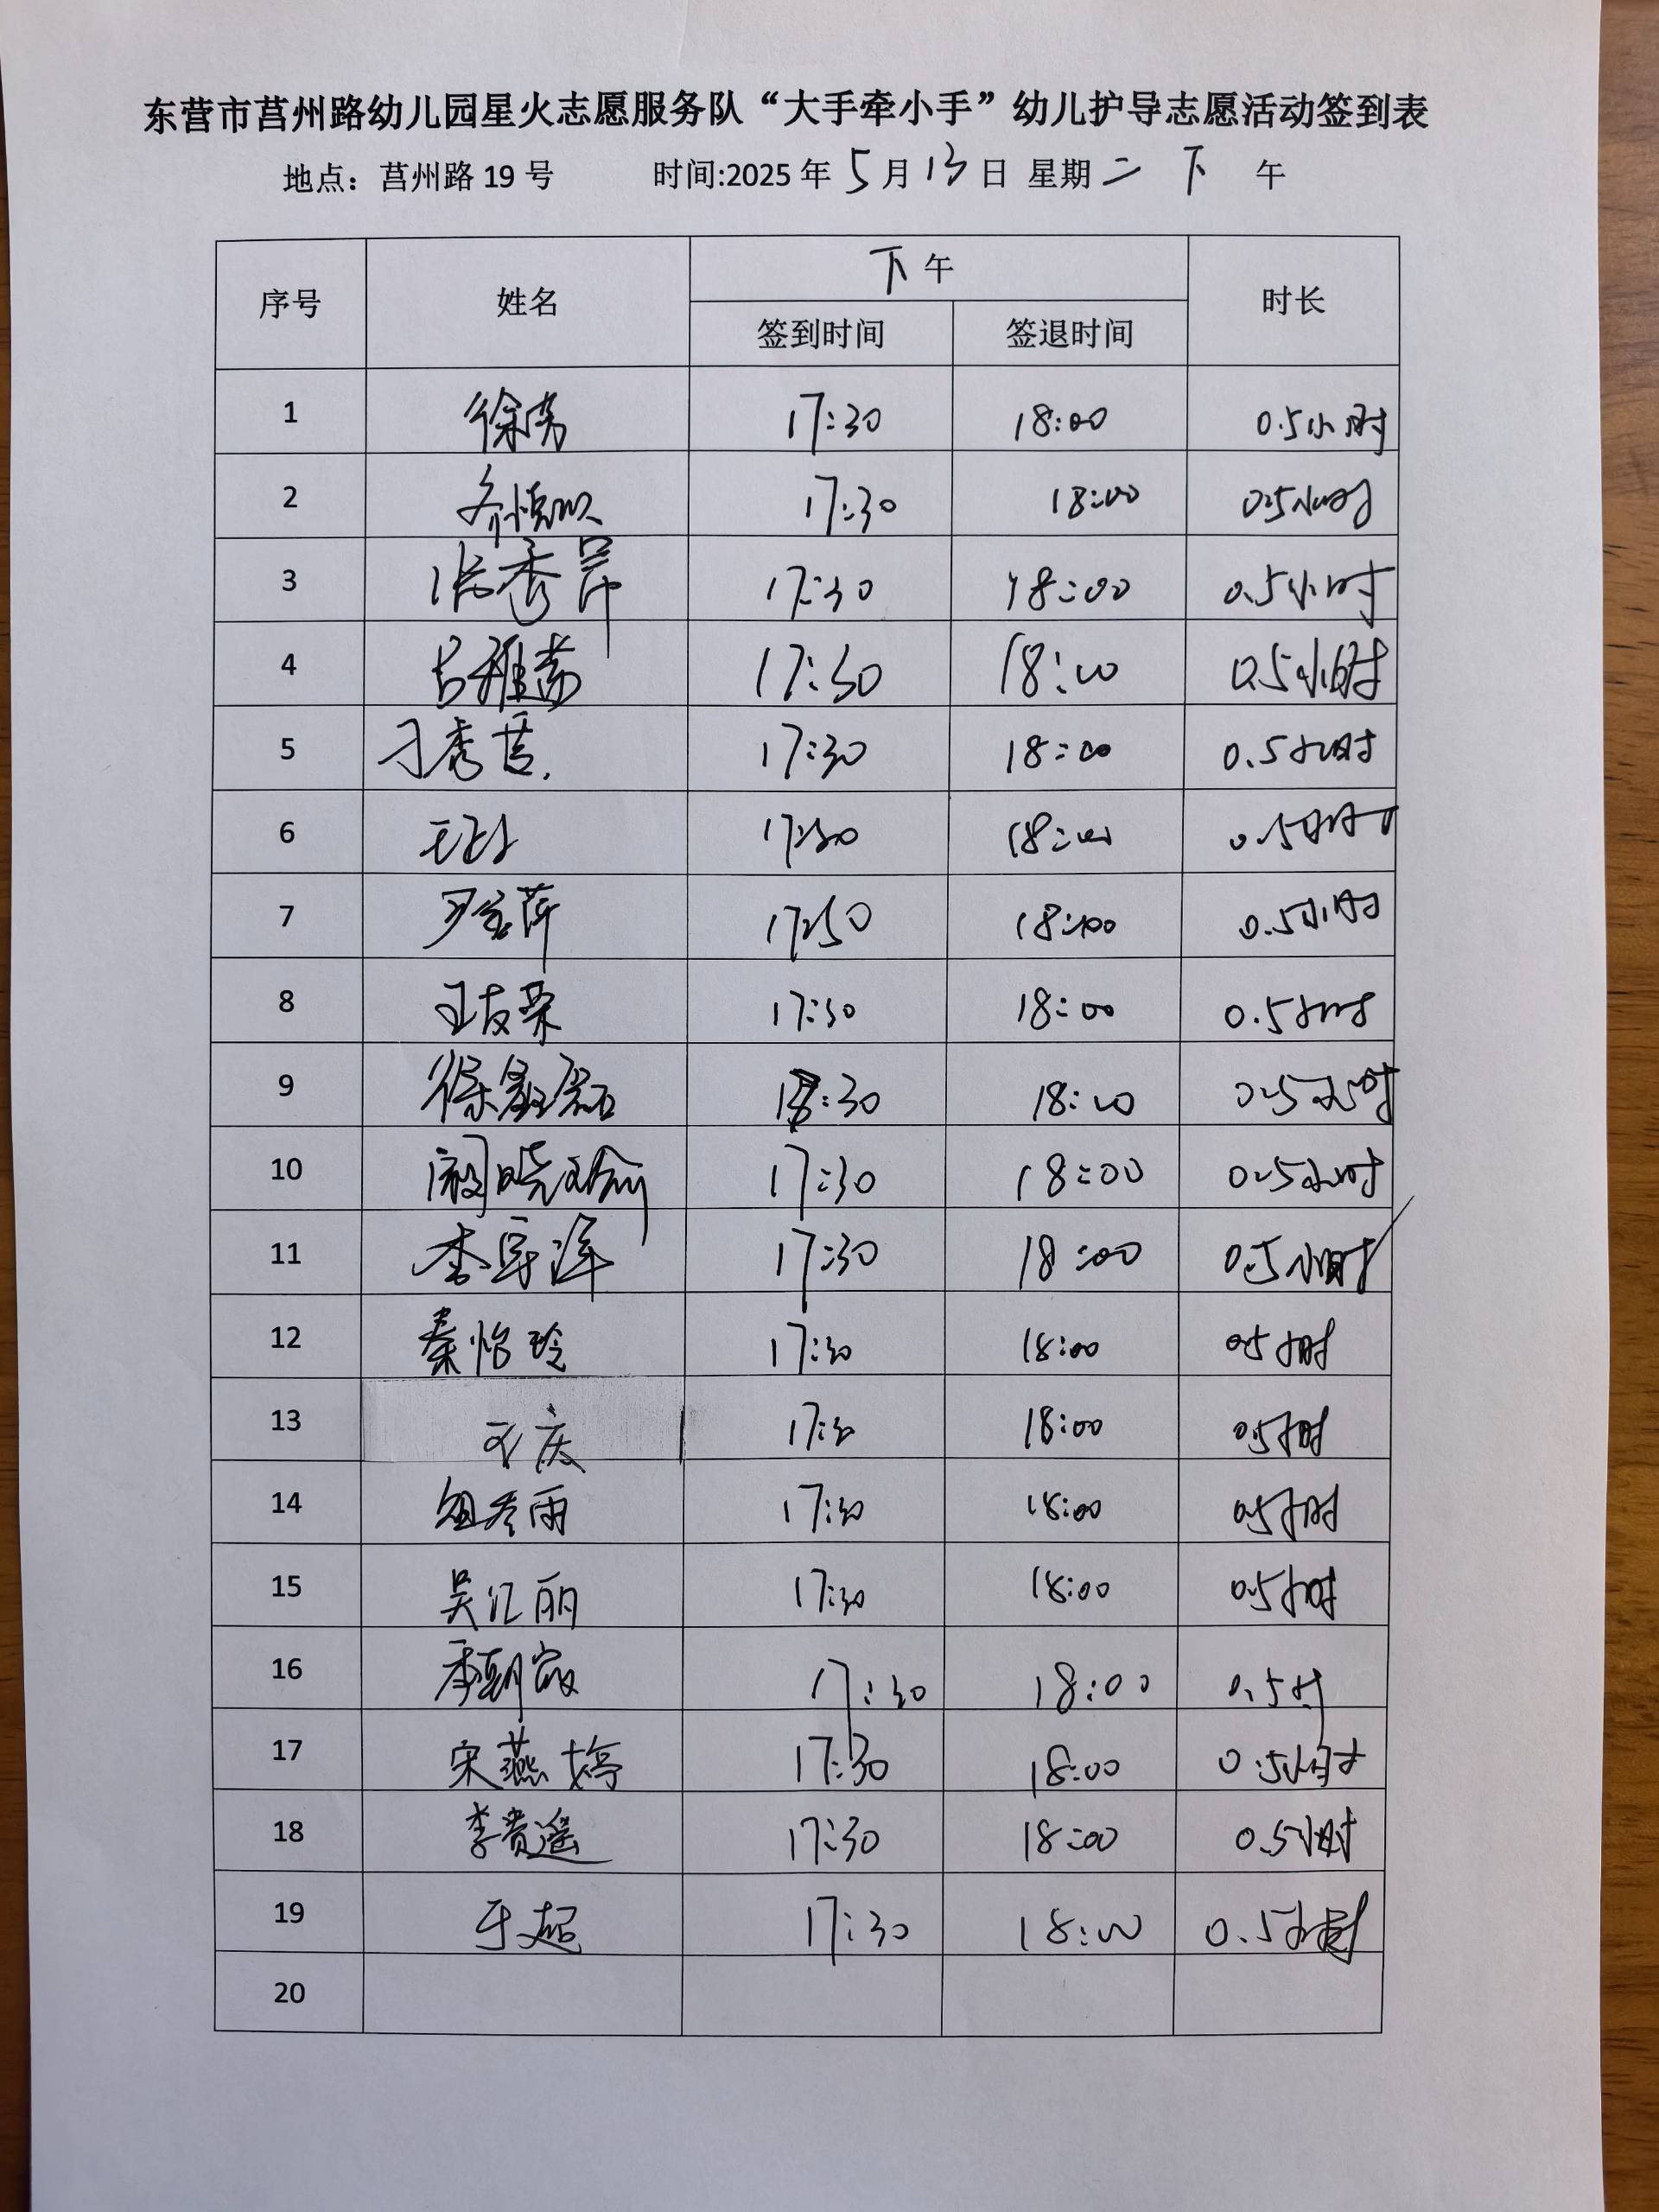 东营市莒州路幼儿园星火志愿服务队“大手牵小手”幼儿护导志愿活动签到表
地点：莒州路 19 号 时间:2025 年 5 月 13 日 星期 二 下 午
序号 姓名 下 午 时长
签到时间 签退时间
1 17:30 18:00 0.5小时
2 17:30 18:00 0.5小时
3 张秀萍 17:30 18:00 0.5小时
4 17:30 18:00 0.5小时
5 17:30 18:00 0.5小时
6 17:30 18:00 0.5小时
7 18:00 0.5小时
8 17:30 18:00 0.5小时
9 18:00 0.5小时
10 17:30 18:00 0.5小时
11 17:30 18:00 0.5小时
12 秦怡玲 17:30 18:00 0.5小时
13 17:30 18:00 0.5小时
14 17:30 18:00 0.5小时
15 吴汇丽 17:30 18:00 0.5小时
16 17:30 18:00 0.5时
17 宋燕婷 17:30 18:00 0.5小时
18 李贵遥 17:30 18:00 0.5小时
19 于超 17:30 18:00 0.5小时
20